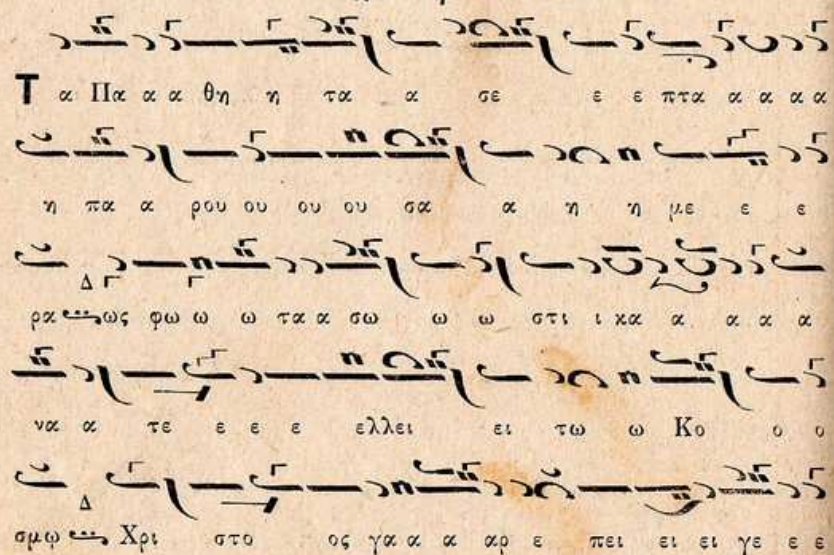 Τ α Πα α α θη η τα α σε ε ε πτα α α α α
η πα α ρου ου ου ου σα α η η με ε ε
ρα ως φω ω ω τα α σω ω ω στι ι κα α α α α
να α τε ε ε ε ελλει ει τω ω Κο ο ο
σμῳ Χρι στο ος γα α α αρ ε πει ει ει γε ε ε